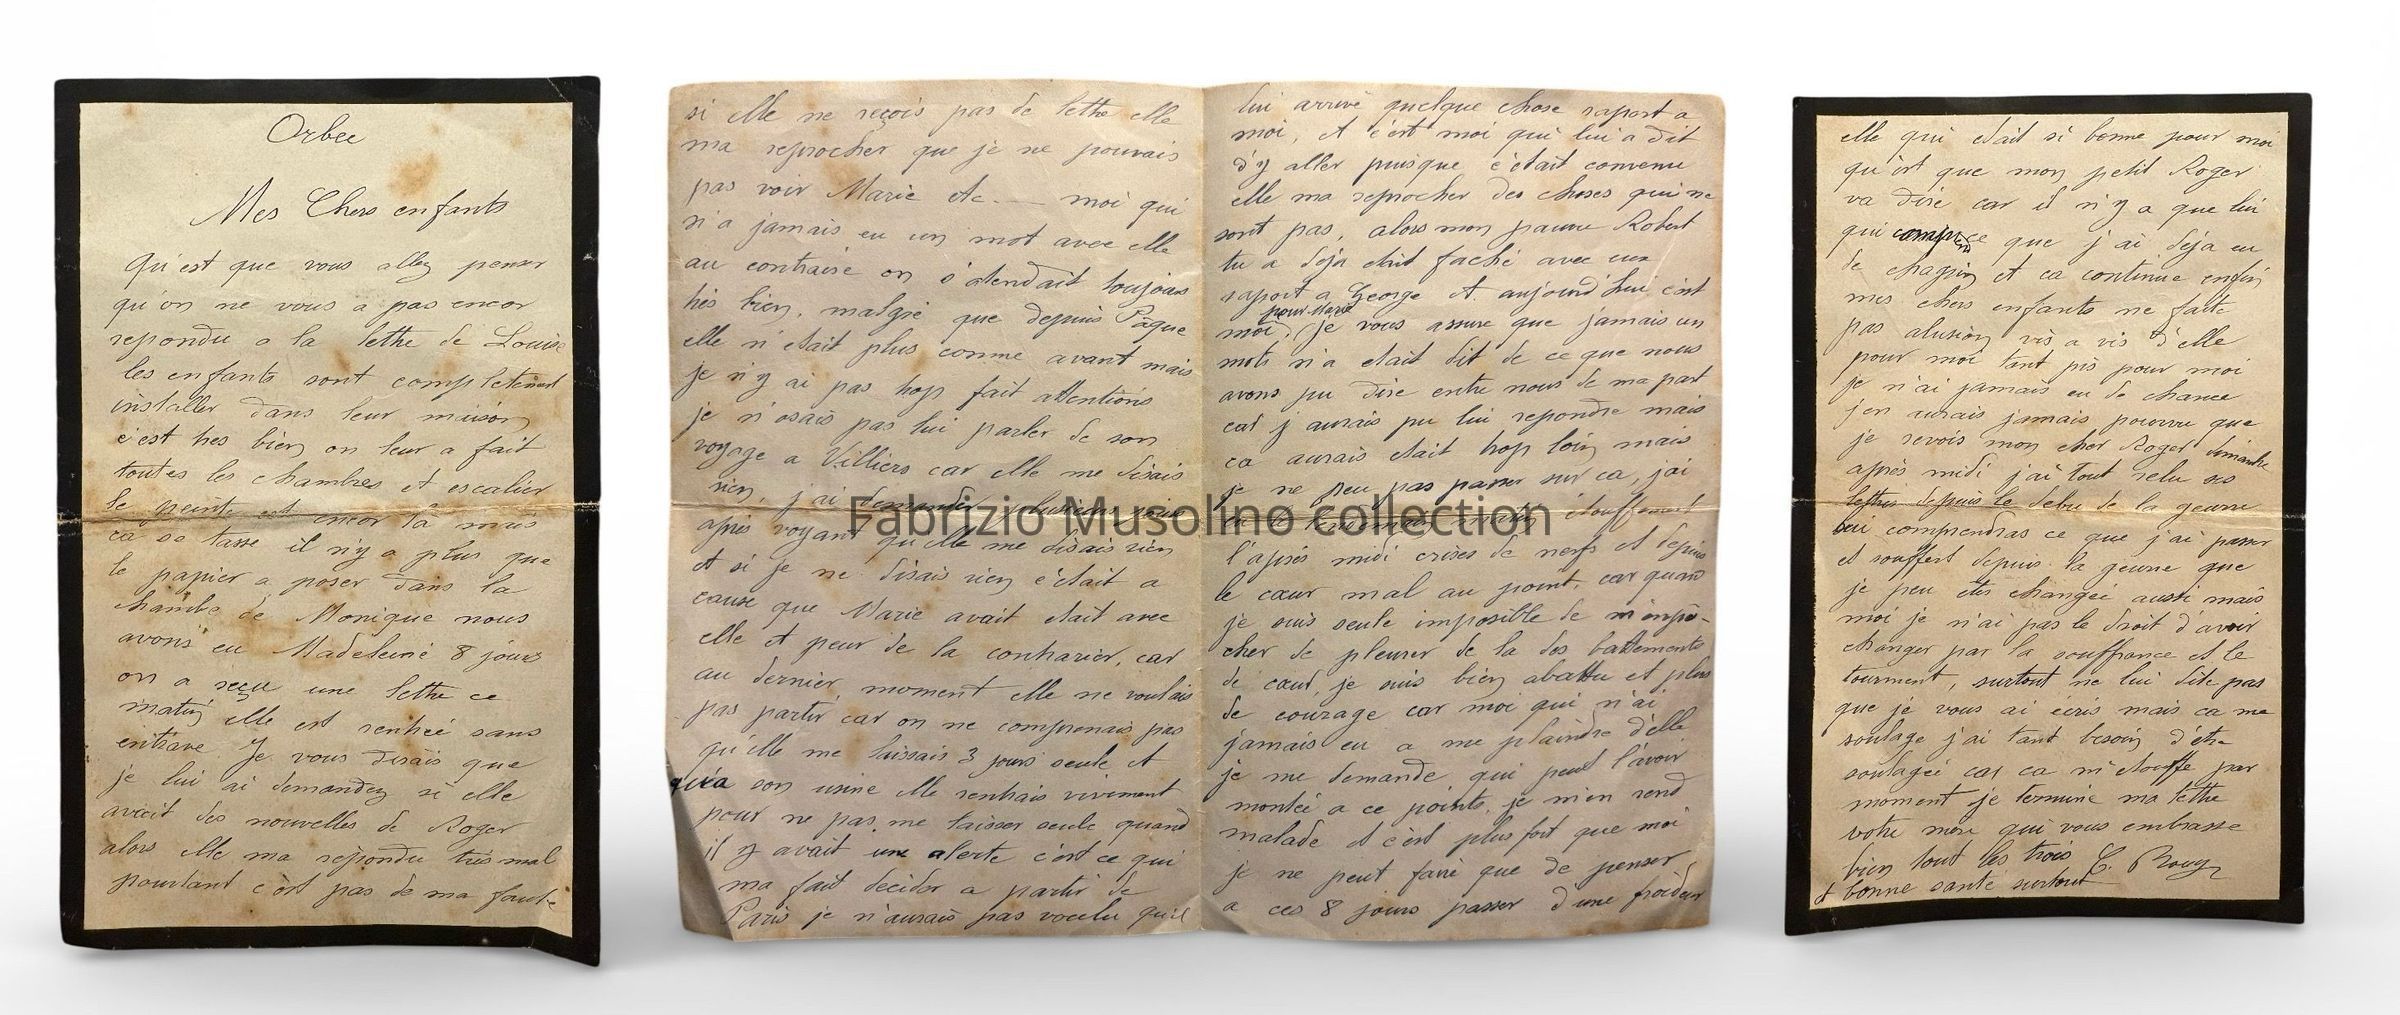 Orbec
Mes Chers enfants
Qu'est que vous allez penser
qu'on ne vous a pas encor
repondu a la lettre de Louise
les enfants sont completement
installer dans leur maison
c'est tres bien on leur a fait
toutes les chambres et escalier
le peintre est encor là mais
ca se tasse il n'y a plus que
le papier a poser dans la
chambre de Monique nous
avons eu Madeleine 8 jours
on a reçu une lettre ce
matin elle est rentrée sans
entrave Je vous disais que
je lui ai demandez si elle
avait des nouvelles de Roger
alors elle ma repondu très mal
pourtant c'est pas de ma faute
si elle ne reçois pas de lettre elle
ma reprocher que je ne pouvais
pas voir Marie etc. — moi qui
n'a jamais eu un mot avec elle
au contraire on s'atendait toujours
très bien, malgré que depuis Paque
elle n'était plus comme avant mais
je n'y ai pas trop fait attentions
je n'osais pas lui parler de son
voyage a Villiers car elle me disais
rien, j'ai demander
après voyant qu'elle me disais rien
et si je ne disais rien c'était a
cause que Marie avait était avec
elle et peur de la contrarier, car
au dernier moment elle ne voulais
pas partir car on ne comprenais pas
qu'elle me laissais 3 jours seule et
qu'a son usine elle rentrais vivement
pour ne pas me laisser seule quand
il y avait une alerte c'est ce qui
ma fait decider a partir de
Paris je n'aurais pas voculu qu'il
lui arrive quelque chose raport a
moi, et c'est moi qui lui a dit
d'y aller puisque c'était convenu
elle ma reprocher des choses qui ne
sont pas, alors mon pauvre Robert
tu a déja était faché avec eux
raport a George et aujourd'hui c'est
pour Marie
moi, je vous assure que jamais un
mots n'a était dit de ce que nous
avons pu dire entre nous de ma part
car j'aurais pu lui repondre mais
ca aurais était trop loin mais
je ne peu pas passer sur ca, j'ai
étouffement
l'après midi crises de nerfs et depuis
le cœur mal au point, car quand
je suis seule imposible de m'empê-
cher de pleurer de la des battements
de cœur, je suis bien abattu et plus
de courage car moi qui n'ai
jamais eu a me plaindre d'elle
je me demande qui peut l'avoir
montée a ce points, je m'en rend
malade et c'est plus fort que moi
je ne peut faire que de penser
a ces 8 jours passer d'une froideur
elle qui était si bonne pour moi
qu'est que mon petit Roger
va dire car il n'y a que lui
qui que j'ai déja eu
de chagrin et ca continue enfin
mes chers enfants ne faite
pas alusion vis a vis d'elle
pour moi tant pis pour moi
je n'ai jamais eu de chance
j'en aurais jamais pourvu que
je revois mon cher Roger, dimanche
après midi j'ai tout relu ses
lettres depuis le debu de la geurre
comprendras ce que j'ai passer
et souffert depuis la geurre que
je peu être changée aussi mais
moi je n'ai pas le droit d'avoir
changer par la souffrance et le
tourment, surtout ne lui dite pas
que je vous ai écris mais ca me
soulage j'ai tant besoin d'être
soulagée car ca m'étouffe par
moment je termine ma lettre
votre mère qui vous embrasse
bien tout les trois
et bonne santé surtout
Fabrizio Musolino collection